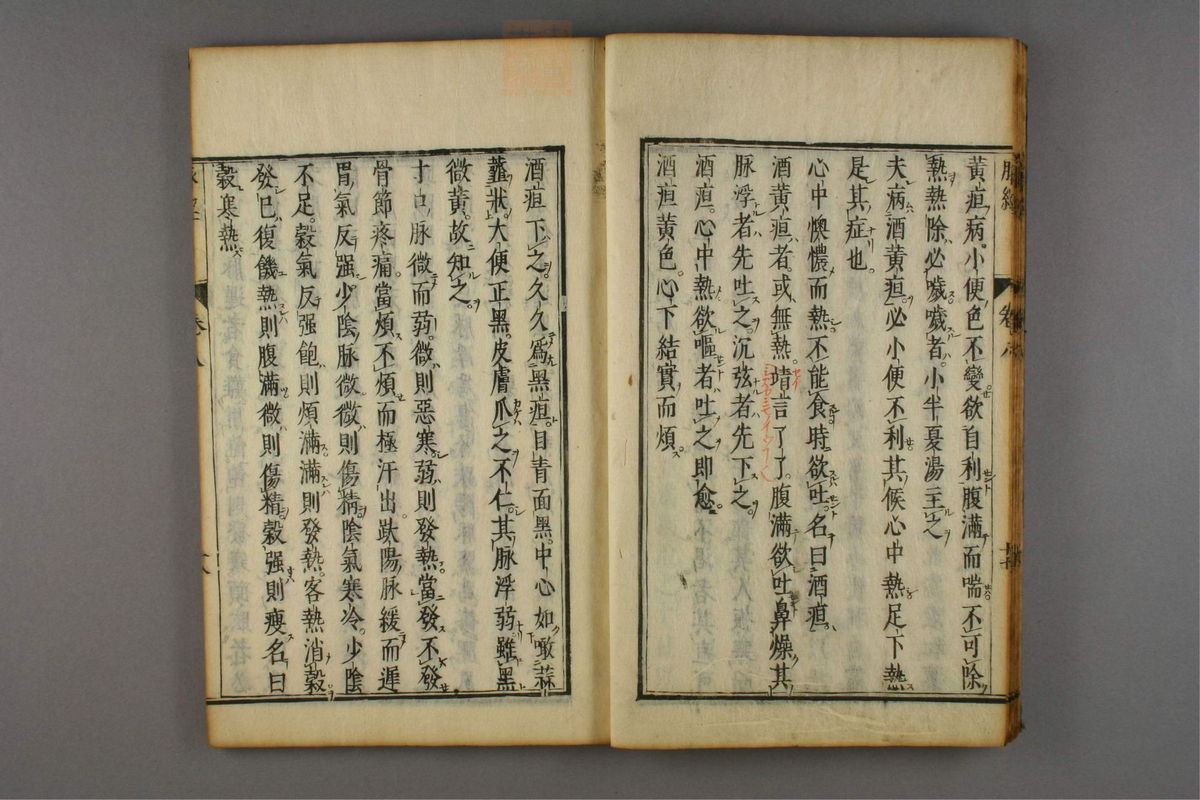 脉經
卷八
黃疸病小便色不變欲自利腹滿而喘不可除
熱熱除必噦噦者小半夏湯主之
夫病酒黃疸必小便不利其候心中熱足下熱
是其症也
心中懊憹而熱不能食時欲吐名曰酒疸
酒黃疸者或無熱靖言了了腹滿欲吐鼻燥其
脉浮者先吐之沉弦者先下之
酒疸心中熱欲嘔者吐之即愈
酒疸黃色心下結實而煩
酒疸下之久久爲黑疸目青面黑中心如噉蒜
虀狀大便正黑皮膚爪之不仁其脉浮弱雖黑
微黃故知之
寸口脉微而弱微則惡寒弱則發熱當發不發
骨節疼痛當煩不煩而極汗出趺陽脉緩而遲
胃氣反强少陰脉微微則傷精陰氣寒冷少陰
不足穀氣反强飽則煩滿滿則發熱客熱消穀
發已復饑熱則腹滿微則傷精穀强則瘦名曰
穀寒熱
卷八